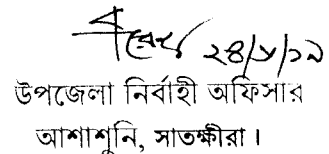 ২৪/৮/১৯
উপজেলা নির্বাহী অফিসার
আশাশুনি, সাতক্ষীরা।